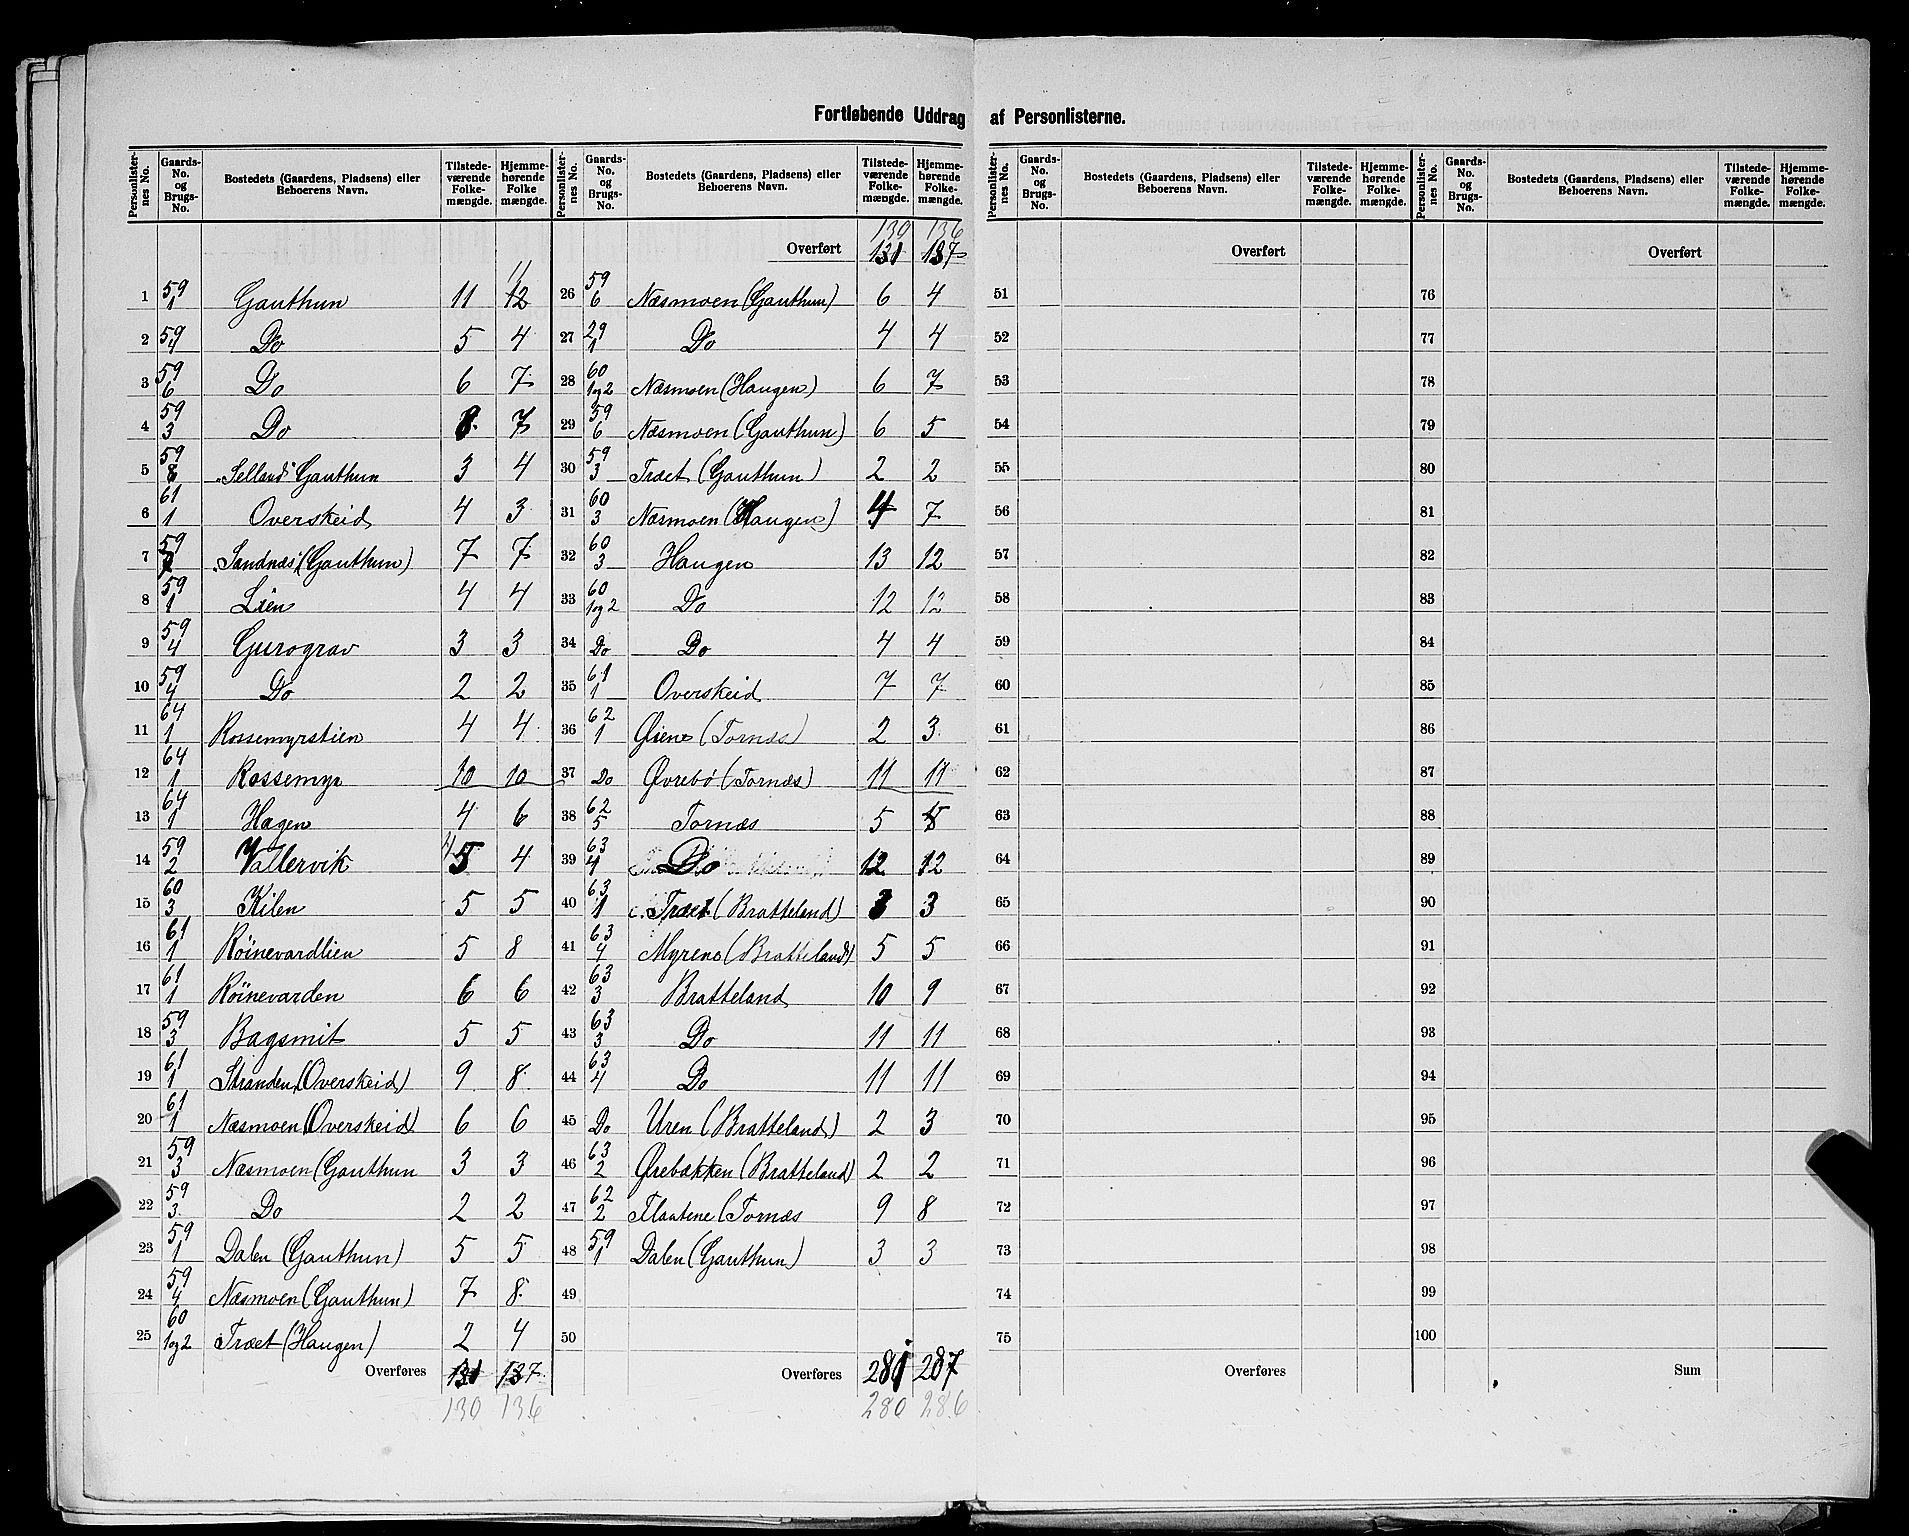 Fortløbende Uddrag af Personlisterne.
Personlisternes No. | Gaards-No. og Brugs-No. | Bostedets (Gaardens, Pladsens) eller Beboerens Navn. | Tilstedeværende Folkemængde. | Hjemmehørende Folkemængde.
1 | 59 1 | Gauthun | 11 | 12 11
2 | 59 4 | Do | 5 | 4
3 | 59 6 | Do | 6 | 7
4 | 59 3 | Do | 8 | 7
5 | 59 8 | "Selland" Gauthun | 3 | 4
6 | 61 1 | Overskeid | 4 | 3
7 | 59 | "Sandnæs" (Gauthun) | 7 | 7
8 | 59 1 | Lien | 4 | 4
9 | 59 4 | Gurograv | 3 | 3
10 | 59 4 | Do | 2 | 2
11 | 64 1 | Rossemyrstien | 4 | 4
12 | 64 1 | Rossemyr | 10 | 10
13 | 64 1 | Hagen | 4 | 6
14 | 59 2 | Vallervik | 4 5 | 4
15 | 60 3 | Kilen | 5 | 5
16 | 61 1 | Röinevardlien | 5 | 8
17 | 61 1 | Röinevarden | 6 | 6
18 | 59 3 | Bagsmit | 5 | 5
19 | 61 1 | Stranden (Overskeid) | 9 | 8
20 | 61 1 | Næsmoen (Overskeid) | 6 | 6
21 | 59 3 | Næsmoen (Gauthun | 3 | 3
22 | 59 3 | Do | 2 | 2
23 | 59 1 | Dalen (Gauthun) | 5 | 5
24 | 59 4 | Næsmoen (Gauthun) | 7 | 8
25 | 60 1og2 | Træet (Haugen) | 2 | 4
Overføres | 131 | 137
130 | 136
130 | 136
Overført | 131 | 137
26 | 59 6 | Næsmoen (Gauthun) | 6 | 4
27 | 29 1 | Do | 4 | 4
28 | 60 1og2 | Næsmoen (Haugen) | 6 | 7
29 | 59 6 | Næsmoen (Gauthun) | 6 | 5
30 | 59 3 | Træet (Gauthun) | 2 | 2
31 | 60 3 | Næsmoen (Haugen) | 4 | 7
32 | 60 3 | Haugen | 13 | 12
33 | 60 1og2 | Do | 12 | 12
34 | Do | Do | 4 | 4
35 | 61 1 | Overskeid | 7 | 7
36 | 62 1 | Øiene (Tornæs) | 2 | 3
37 | Do | Øvrebö (Tornæs) | 11 | 11
38 | 62 5 | Tornæs | 5 | 8
39 | 63 4 | Do | 12 | 12
40 | 63 1 | Træet (Bratteland) | 3 | 3
41 | 63 4 | Myrene (Bratteland) | 5 | 5
42 | 63 3 | Bratteland | 10 | 9
43 | 63 3 | Do | 11 | 11
44 | 63 4 | Do | 11 | 11
45 | Do | Uren (Bratteland) | 2 | 3
46 | 63 2 | Ørebakken (Bratteland) | 2 | 2
47 | 62 2 | Flaatene (Tornæs | 9 | 8
48 | 59 1 | Dalen (Gauthun) | 3 | 3
49
50
Overføres | 281 | 287
280 | 286
Personlisternes No. | Gaards-No. og Brugs-No. | Bostedets (Gaardens, Pladsens) eller Beboerens Navn. | Tilstedeværende Folkemængde. | Hjemmehørende Folkemængde.
Overført
51
52
53
54
55
56
57
58
59
60
61
62
63
64
65
66
67
68
69
70
71
72
73
74
75
Overføres
Overført
76
77
78
79
80
81
82
83
84
85
86
87
88
89
90
91
92
93
94
95
96
97
98
99
100
Sum